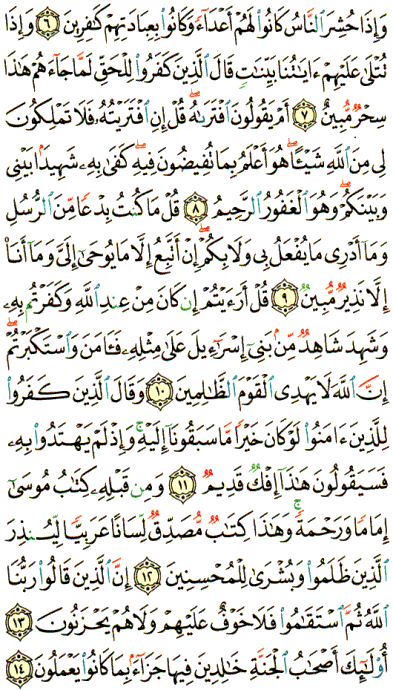 وَإِذَا حُشِرَ النَّاسُ كَانُوا۟ لَهُمْ أَعْدَآءً وَكَانُوا۟ بِعِبَادَتِهِمْ كَٰفِرِينَ ۝٦ وَإِذَا
تُتْلَىٰ عَلَيْهِمْ ءَايَٰتُنَا بَيِّنَٰتٍ قَالَ الَّذِينَ كَفَرُوا۟ لِلْحَقِّ لَمَّا جَآءَهُمْ هَٰذَا
سِحْرٌ مُّبِينٌ ۝٧ أَمْ يَقُولُونَ افْتَرَىٰهُ ۖ قُلْ إِنِ افْتَرَيْتُهُۥ فَلَا تَمْلِكُونَ
لِى مِنَ اللَّهِ شَيْـًٔا ۖ هُوَ أَعْلَمُ بِمَا تُفِيضُونَ فِيهِ ۖ كَفَىٰ بِهِۦ شَهِيدًۢا بَيْنِى
وَبَيْنَكُمْ ۖ وَهُوَ الْغَفُورُ الرَّحِيمُ ۝٨ قُلْ مَا كُنتُ بِدْعًا مِّنَ الرُّسُلِ
وَمَآ أَدْرِى مَا يُفْعَلُ بِى وَلَا بِكُمْ ۖ إِنْ أَتَّبِعُ إِلَّا مَا يُوحَىٰٓ إِلَىَّ وَمَآ أَنَا۠
إِلَّا نَذِيرٌ مُّبِينٌ ۝٩ قُلْ أَرَءَيْتُمْ إِن كَانَ مِنْ عِندِ اللَّهِ وَكَفَرْتُم بِهِۦ
وَشَهِدَ شَاهِدٌ مِّنۢ بَنِىٓ إِسْرَٰٓءِيلَ عَلَىٰ مِثْلِهِۦ فَـَٔامَنَ وَاسْتَكْبَرْتُمْ ۖ
إِنَّ اللَّهَ لَا يَهْدِى الْقَوْمَ الظَّٰلِمِينَ ۝١٠ وَقَالَ الَّذِينَ كَفَرُوا۟
لِلَّذِينَ ءَامَنُوا۟ لَوْ كَانَ خَيْرًا مَّا سَبَقُونَآ إِلَيْهِ ۚ وَإِذْ لَمْ يَهْتَدُوا۟ بِهِۦ
فَسَيَقُولُونَ هَٰذَآ إِفْكٌ قَدِيمٌ ۝١١ وَمِن قَبْلِهِۦ كِتَٰبُ مُوسَىٰٓ
إِمَامًا وَرَحْمَةً ۚ وَهَٰذَا كِتَٰبٌ مُّصَدِّقٌ لِّسَانًا عَرَبِيًّا لِّيُنذِرَ
الَّذِينَ ظَلَمُوا۟ وَبُشْرَىٰ لِلْمُحْسِنِينَ ۝١٢ إِنَّ الَّذِينَ قَالُوا۟ رَبُّنَا
اللَّهُ ثُمَّ اسْتَقَٰمُوا۟ فَلَا خَوْفٌ عَلَيْهِمْ وَلَا هُمْ يَحْزَنُونَ ۝١٣
أُو۟لَٰٓئِكَ أَصْحَٰبُ الْجَنَّةِ خَٰلِدِينَ فِيهَا جَزَآءًۢ بِمَا كَانُوا۟ يَعْمَلُونَ ۝١٤